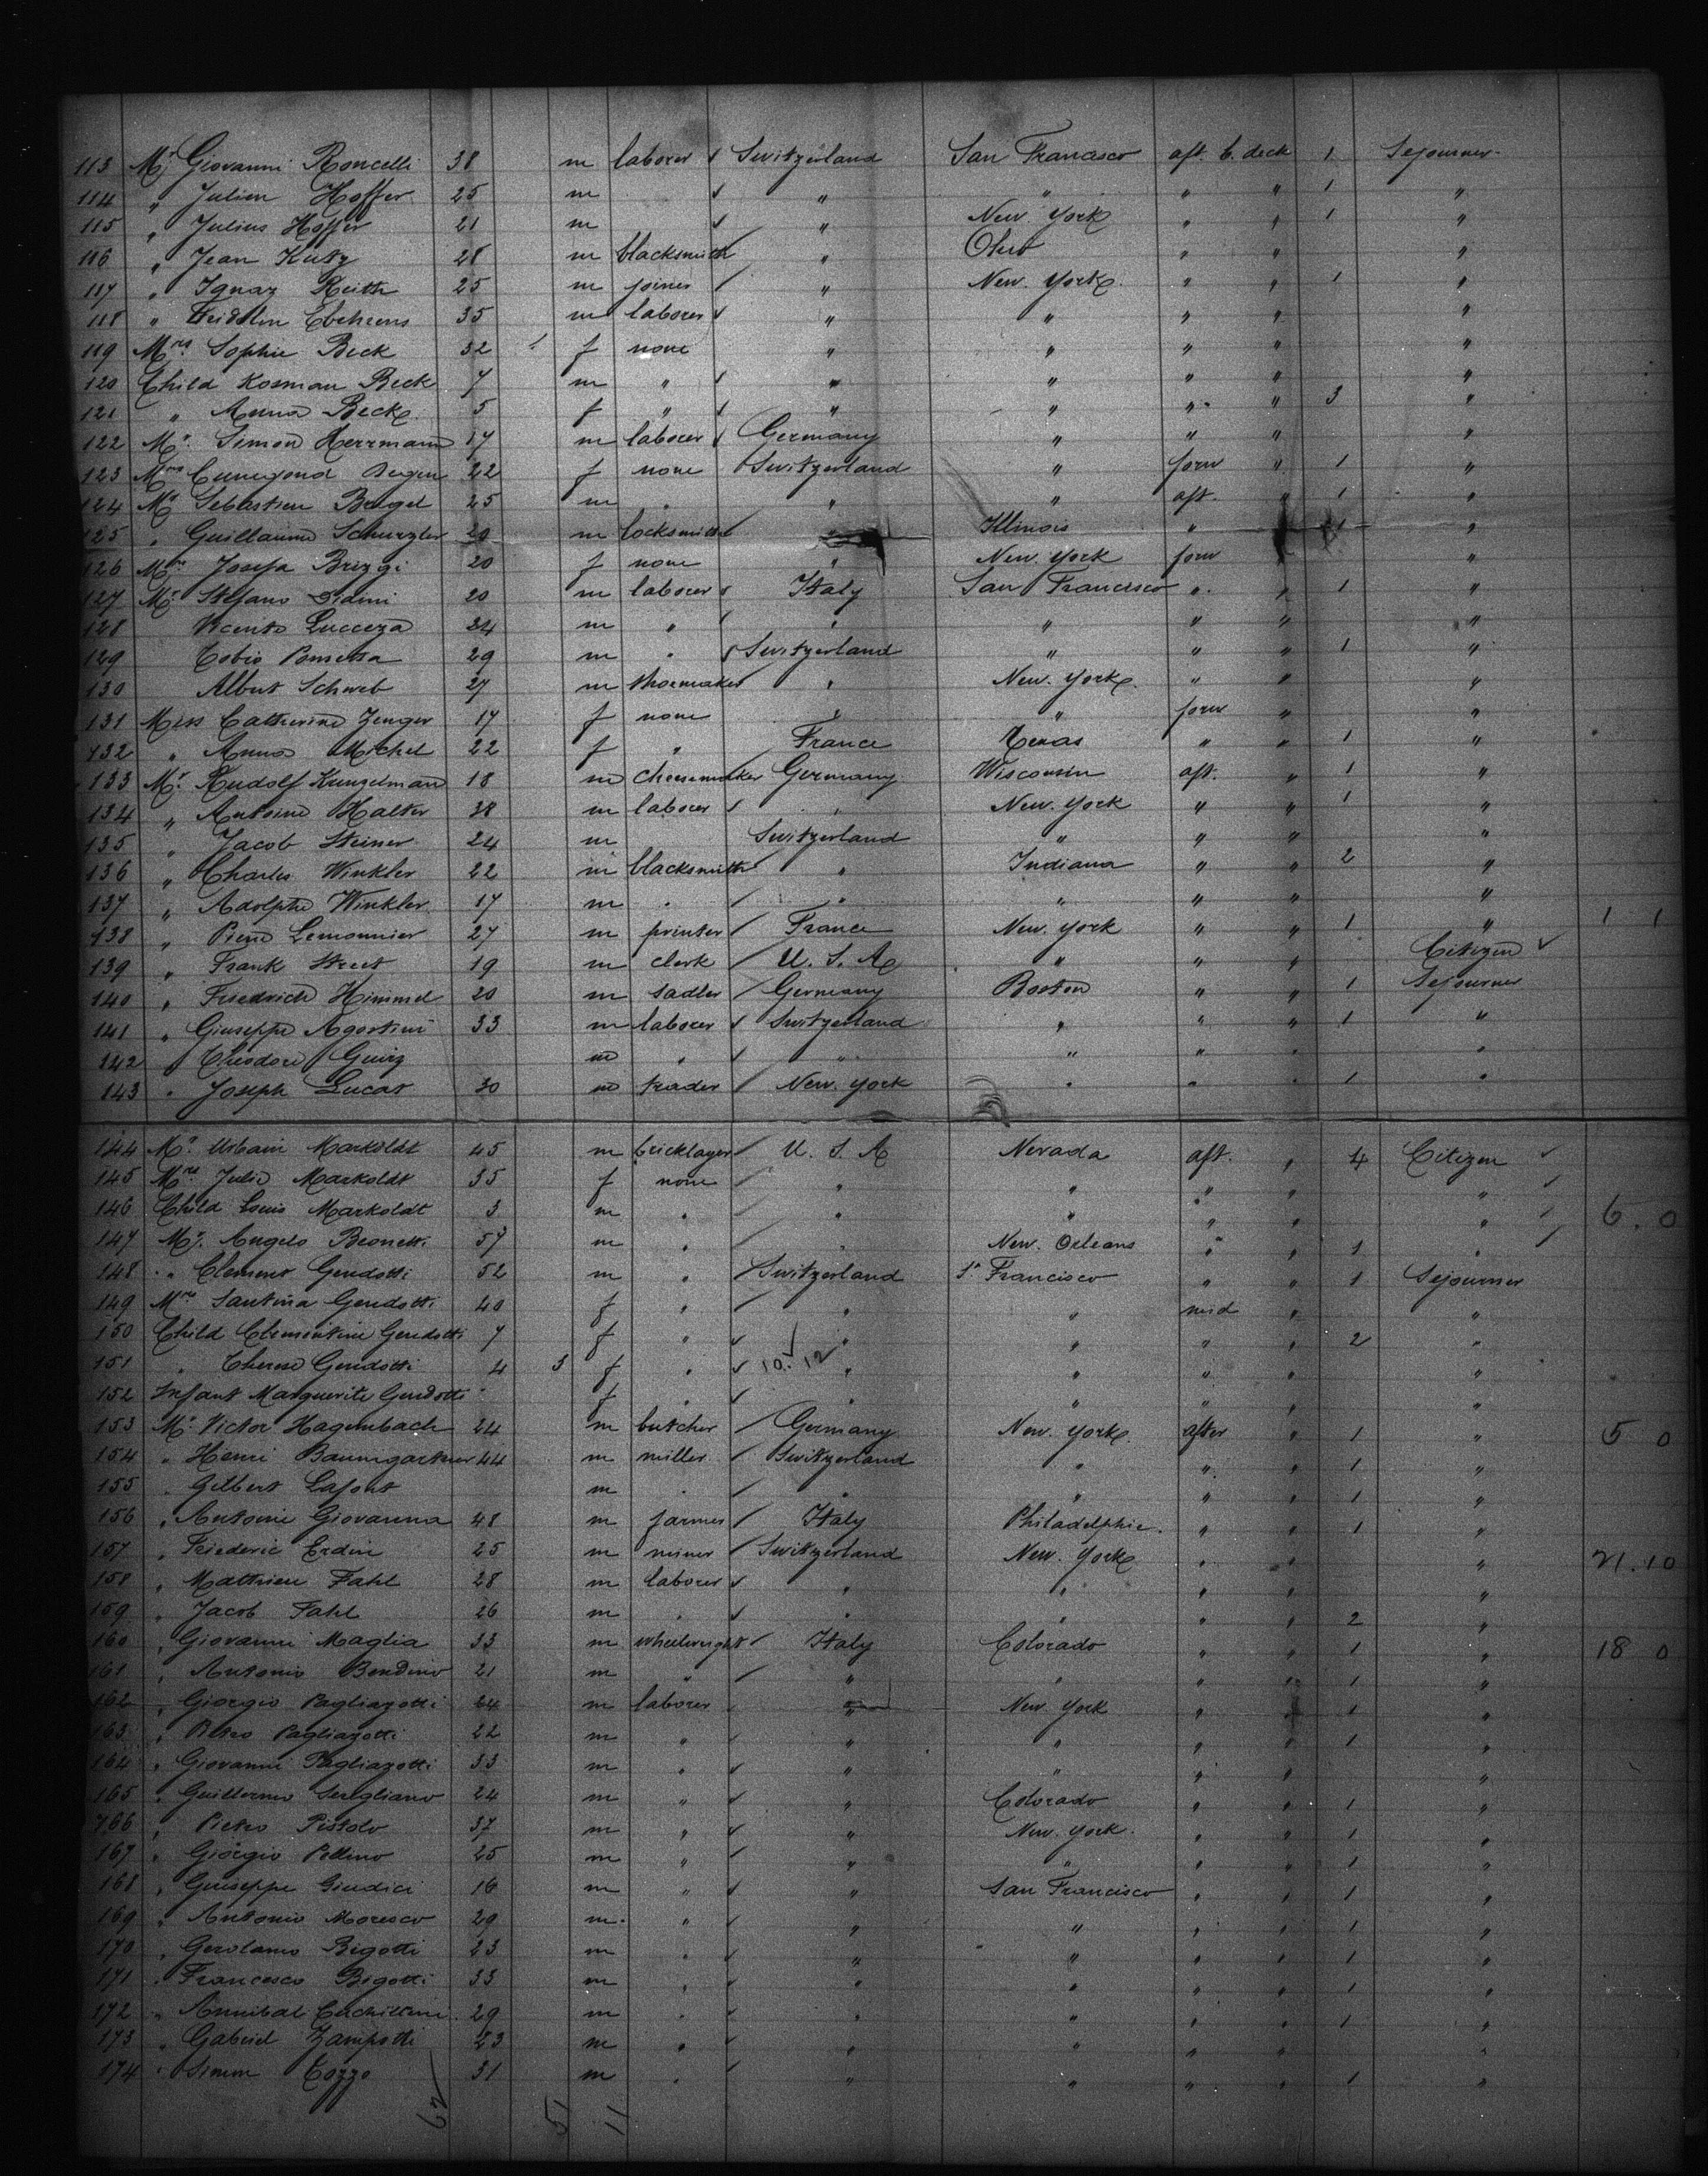 113 Mr Giovanni Roncelli 38 m laborer Switzerland San Francisco aft. b. deck 1 Sejourner
114 " Julien Hoffer 25 m " " " " 1 "
115 " Julius Hoffer 21 m " New York " " 1 "
116 " Jean Kutz 28 m blacksmith " Ohio " " "
117 " Ignaz Keith 25 m joiner " New York " " 1 "
118 " Fridolin 35 m laborer " " " " "
119 Mrs Sophie Beck 32 f none " " " " "
120 Child Kosman Beck 7 m " " " " " "
121 " Anna Beck 5 f " " " " " 3 "
122 Mr Simon Herrmann 17 m laborer Germany " " " "
123 Mrs 22 f none Switzerland " forw " 1 "
124 Mr Sebastien 25 m " " " aft. " 1 "
125 " Guillaume 20 m locksmith " Illinois " 1 "
126 Josefa Brizzi 20 f none " New York forw "
127 Mr Stefano 20 m laborer Italy San Francisco " " 1 "
128 24 m " " " " " "
129 29 m " Switzerland " " " 1 "
130 Albert Schweb 27 m shoemaker " New York " " "
131 Miss Catherine Zenger 17 f none " " forw " "
132 " Anna Michel 22 f " France Texas " " 1 "
133 Mr Rudolf Kunzelmann 18 m cheesemaker Germany Wisconsin aft. " 1 "
134 " Antoine Halter 38 m laborer " New York " " 1 "
135 " Jacob Steiner 24 m Switzerland " " " "
136 " Charles Winkler 22 m blacksmith " Indiana " " 2 "
137 " Adolphe Winkler 17 m " " " " " "
138 " Pierre Lemonnier 27 m printer France New York " " 1 " 1 1
139 " Frank Street 19 m clerk U. S. A " " " Citizen
140 " Friedrich Himmel 20 m sadler Germany Boston " " 1 Sejourner
141 " Giuseppe Agostini 33 m laborer Switzerland " " " 1 "
142 " Theodore m " " " " " "
143 " Joseph Lucas 30 m trader New York " " " 1 "
144 Mr Urbain Markoldt 45 m bricklayer U. S. A Nevada aft. " 4 Citizen
145 Mrs Julie Markoldt 35 f none " " " " "
146 Child Louis Markoldt 3 m " " " " " " 6. 0
147 Mr. Angelo 57 m " " New. Orleans " " 1 "
148 " Clement Gendotti 52 m " Switzerland Sn Francisco " " 1 Sejourner
149 Mrs Santina Gendotti 40 f " " " mid " "
150 Child Clementine Gendotti 7 f " " " " " 2 "
151 " Therese Gendotti 4 f " 10. 12 " " " " "
152 Infant Marguerite Gendotti f " " " " " "
153 Mr Victor Hagenbach 24 m butcher Germany New. York after " 1 " 5 0
154 " Henri Baumgartner 44 m miller Switzerland " " " 1 "
155 " Gilbert Lafont m " " " " " 1 "
156 " Antoine Giovanna 48 m farmer Italy Philadelphie. " " 1 "
157 " Friederic Erdin 25 m miner Switzerland New. York " " " 21. 10
158 " Mathieu Fahl 28 m laborer " " " " "
159 " Jacob Fahl 26 m " " " " " 2 "
160 " Giovanni Maglia 33 m wheelwright Italy Colorado " " 1 " 18 0
161 " Antonio Bendino 21 m " " " " " 1 "
162 " Giorgio Pagliazotti 24 m laborer " New York " " 1 "
163 " Pietro Pagliazotti 22 m " " " " " 1 "
164 " Giovanni Pagliazotti 33 m " " " " " "
165 " Guillermo 24 m " " Colorado " " 1 "
166 " Pietro Pistolo 37 m " " New. York. " " 1 "
167 " Giorgio Pellino 25 m " " " " " 1 "
168 " Giuseppe Giudici 16 m " " San Francisco " " 1 "
169 " Antonio Moresco 29 m " " " " " 1 "
170 " Gerolamo Bigotti 23 m " " " " " 1 "
171 " Francesco Bigotti 33 m " " " " " 1 "
172 " Annibal 29 m " " " " " 1 "
173 " Gabriel Zampotti 23 m " " " " " "
174 " Simon Cozzo 31 m " " " " " 1 "
62 51 11